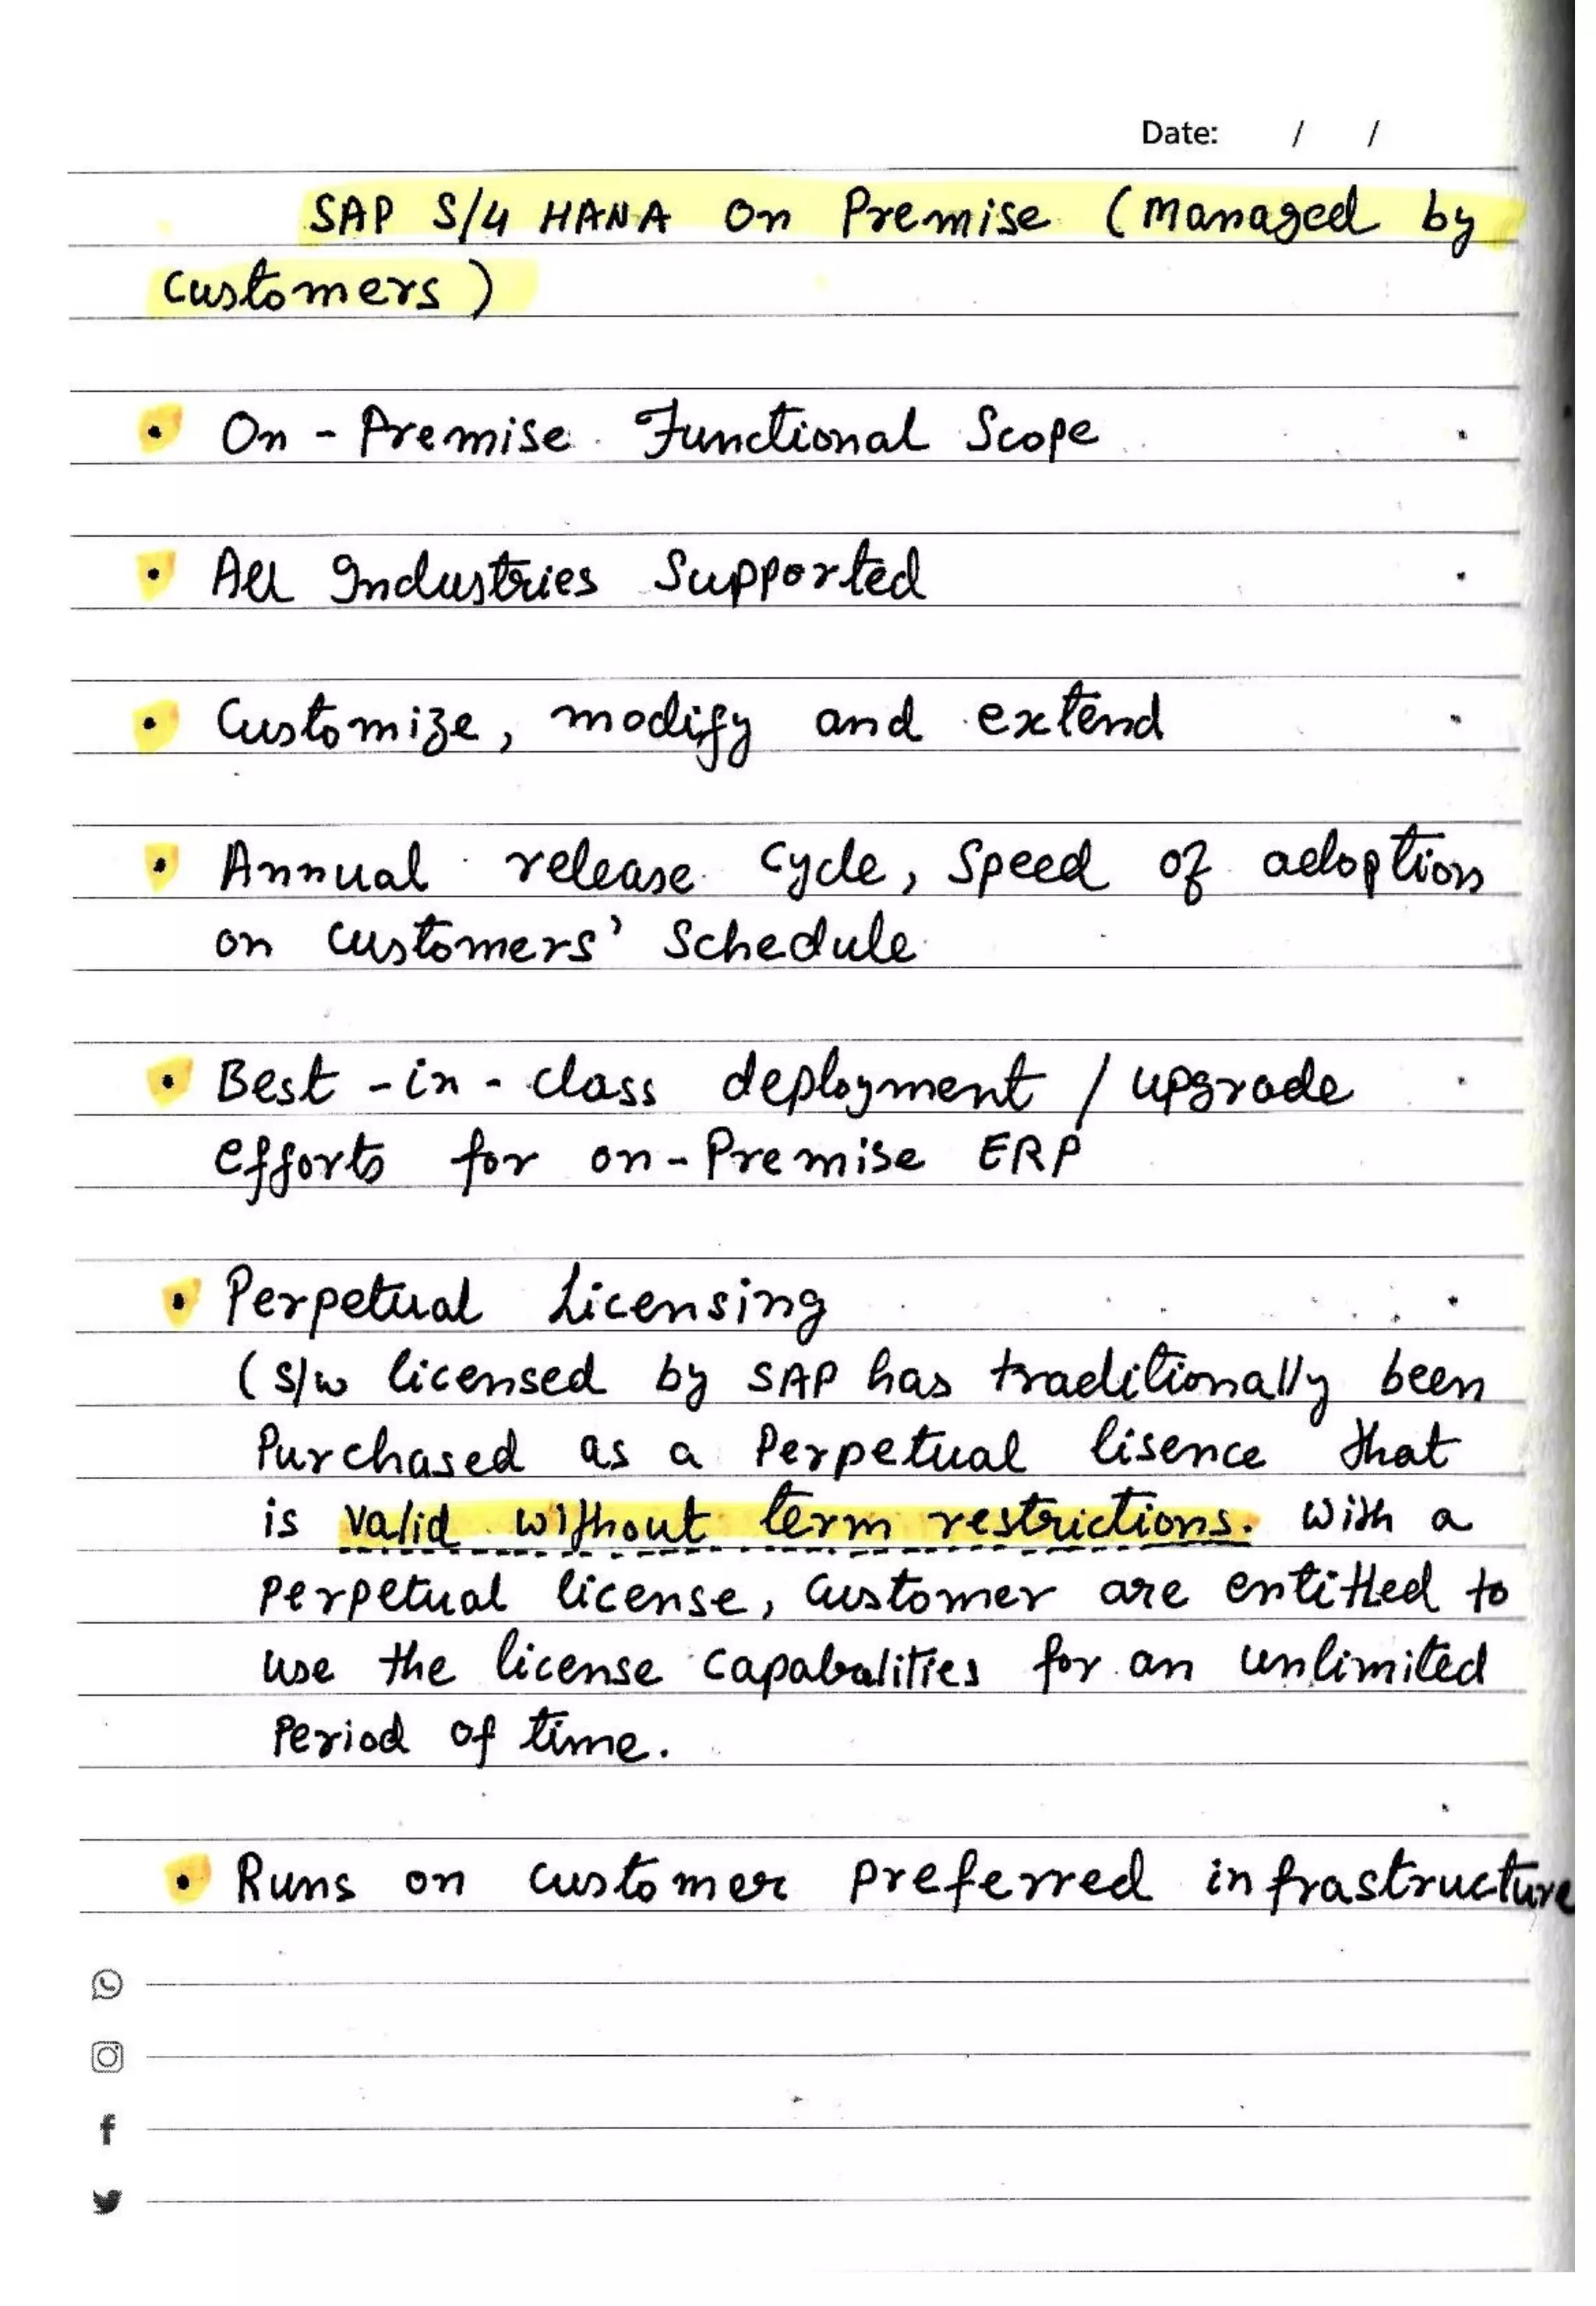 Date: / /
SAP S/4 HANA on Premise (Managed by
customers)
• On - Premise Functional Scope
• All Industries Supported
• Customize, modify and extend
• Annual release cycle, Speed of adoption
on customers' Schedule
• Best - in - class deployment / upgrade
efforts for on - Premise ERP
• Perpetual Licensing
(S/w licensed by SAP has traditionally been
Purchased as a Perpetual lisence that
is valid without term restrictions. With a
perpetual license, Customer are entitled to
use the license capabalities for an unlimited
Period of time.
• Runs on customer preferred infrastructure